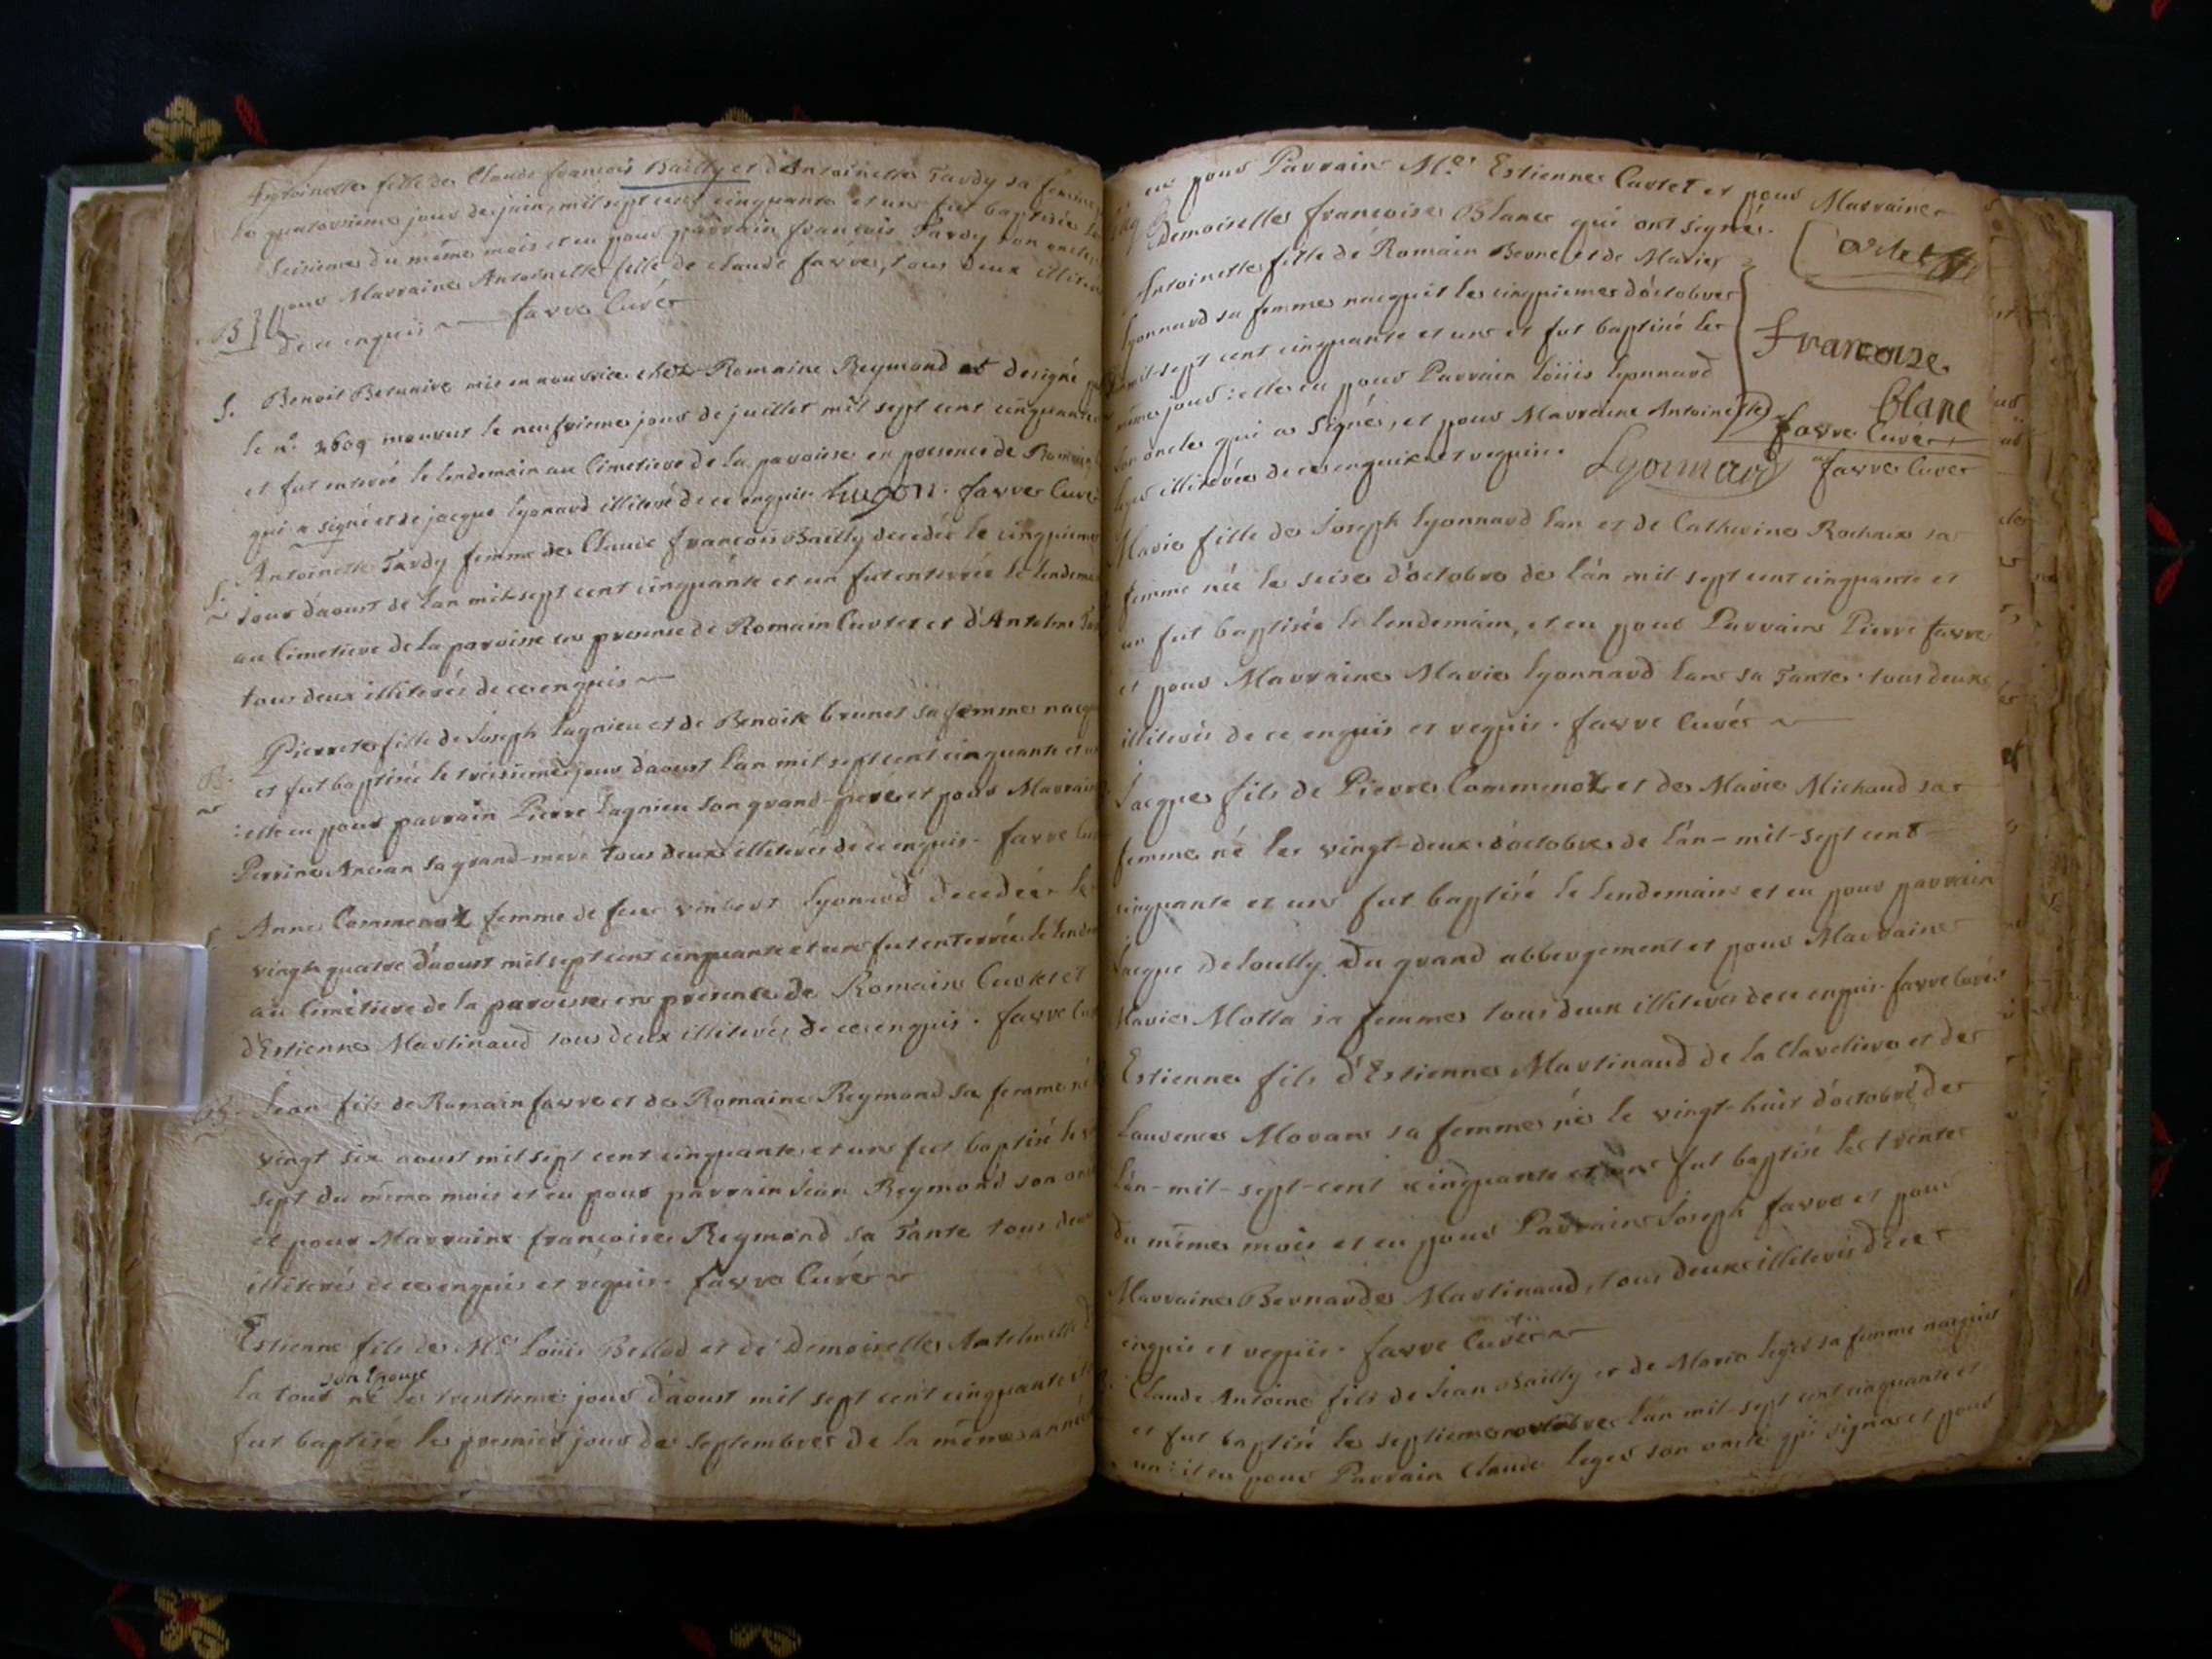 Antoinette fille de Claude francois Bailly et d'Antoinette Tardy sa femme
le quatorzieme jour de juin, mil sept cent cinquante et un fut baptisée le
seizieme du même mois et eu pour parrain francois Tardy son oncle
pour Marraine Antoinette fille de claude favre, tous deux illiterés
B
de ce enquis favre Curé
S.
Benoit Besunire mis en nourrice chez Romaine Reymond et designé
le n.o 2609 mourut le neufvieme jour de juillet mil sept cent cinquante
et fut enterré le lendemain au Cimetiere de la paroisse en presence de Romain
qui a signé et de jacque lyonard illiteré de ce enquis hugon. favre Curé
S.
Antoinette Tardy femme de Claude francois Bailly decedée le cinquieme
jour d'aoust de l'an mil-sept cent cinquante et un fut enterrée le lendemain
au Cimetiere de la paroisse en presence de Romain Curtet et d'Antelme
tous deux illiterés de ce enquis
Pierrete fille de Joseph Lagnieu et de Benoite brunet sa femme
B.
et fut baptisée le treizieme jour d'aoust l'an mil sept cent cinquante et
:elle eu pour parrain Pierre Lagnieu son grand-pere et pour Marraine
Perrine Ancian sa grand-mere tous deux illiterés de ce enquis. favre
Anne Commenoz femme de feu vinbert lyonard decedée le
vingt quatre d'aoust mil sept cent cinquante et un fut enterrée le
au Cimetiere de la paroisse en presence de Romain Curtet et
d'Estienne Martinaud tous deux illiterés de ce enquis. favre
B.
Jean fils de Romain favre et de Romaine Reymond sa femme né
vingt six aoust mil sept cent cinquante et un fut baptisé le
sept du même mois et eu pour parrain Jean Reymond son
et pour Marraine francoise Reymond sa Tante tous deux
illiterés de ce enquis et requis. favre Curé
Estienne fils de M.e Loüis Bellod et de Demoiselle Antelmette
son Epouse
la tour né le trentieme jour d'aoust mil sept cent cinquante
fut baptisé le premier jour de septembre de la même année
eu pour Parrain M.e Estienne Curtet et pour Marraine
Demoiselle francoise Blanc qui ont signé.
Curtet
Antoinette fille de Romain Berne et de Marie
lyonnard sa femme nacquit le cinquieme d'octobre
mil-sept cent cinquante et un et fut baptisé le
francoize
même jour :elle eu pour Parrain loüis lyonnard
blanc
son oncle qui a signé, et pour Marraine Antoinette
favre Curé
illiterée de ce enquise et requise.
Lyonnard
favre Curé
Marie fille de Joseph lyonnard Lan et de Catherine Rochaix sa
femme née le seize d'octobre de l'an mil-sept cent cinquante et
un fut baptisée le lendemain, et eu pour Parrain Pierre favre
et pour Marraine Marie lyonnard Lan sa Tante. tous deux
illiterés de ce enquis et requis. favre Curé
Jacque fils de Pierre Commenoz et de Marie Michaud sa
femme né le vingt-deux d'octobre de l'an-mil-sept cent
cinquante et un fut baptisé le lendemain et eu pour parrain
Jacque Deloully Du grand abbergement et pour Marraine
Marie Motta sa femme tous deux illiterés de ce enquis. favre Curé
Estienne fils d'Estienne Martinaud de la Claveliere et de
Laurence Moran sa femme né le vingt-huit d'octobre de
l'an-mil-sept-cent cinquante et un fut baptisé le trente
du même mois et eu pour Parrain Joseph favre et pour
Marraine Bernarde Martinaud, tous deux illiterés de ce
enquis et requis. favre Curé
Claude Antoine fils de Jean Bailly et de Marie leger sa femme nacquit
et fut baptisé le septieme l'an mil-sept cent cinquante et
un :il eu pour Parrain Claude leger son oncle qui signe et pour